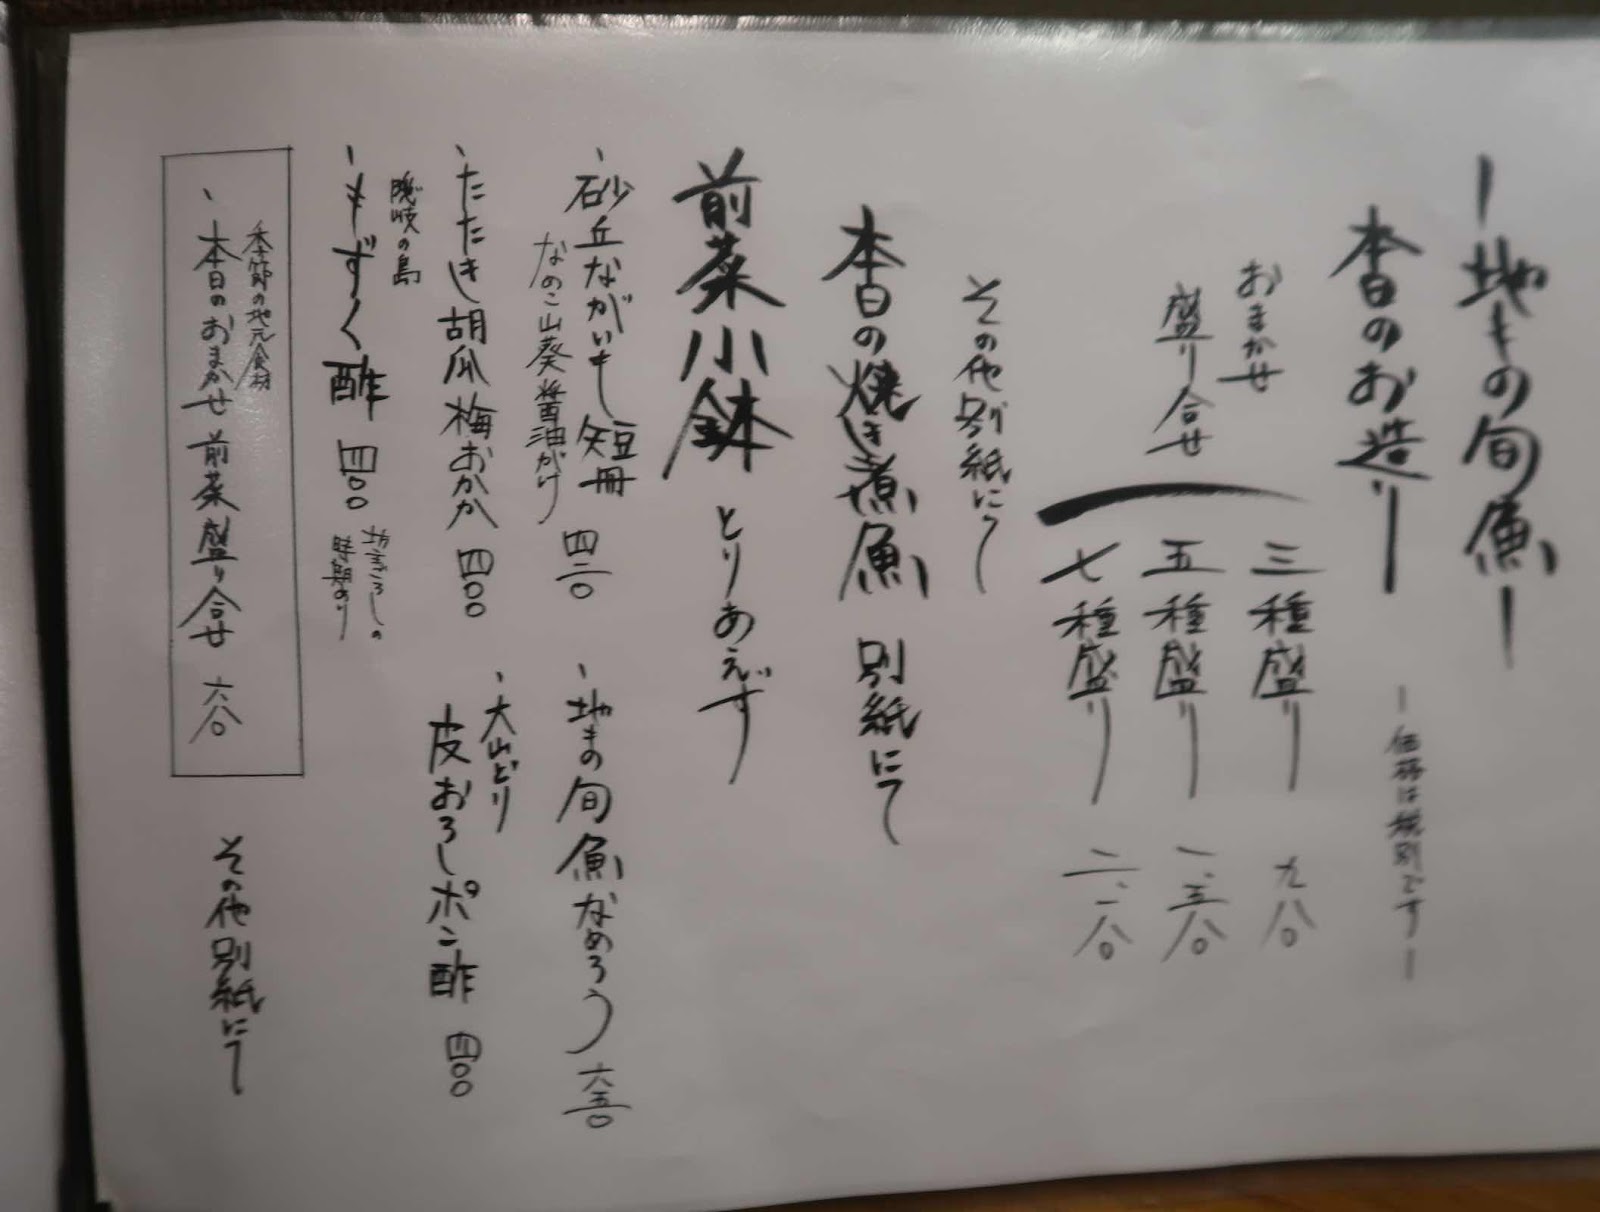 ー地もの旬魚ー
本日のお造り
ー価格は税別ですー
おまかせ
盛り合せ
三種盛り 九八〇
五種盛り 一、五八〇
七種盛り 二、一八〇
その他別紙にて
本日の焼き煮魚 別紙にて
前菜小鉢 とりあえず
、砂丘ながいも短冊 四二〇
なのこ山葵醤油がけ
、地もの旬魚なめろう 六五〇
、たたき胡瓜梅おかか 四〇〇
、大山どり
皮おろしポン酢 四〇〇
隠岐の島
、もずく酢 四〇〇
時期あり
季節の地元食材
、本日のおまかせ前菜盛り合せ 六八〇
その他別紙にて